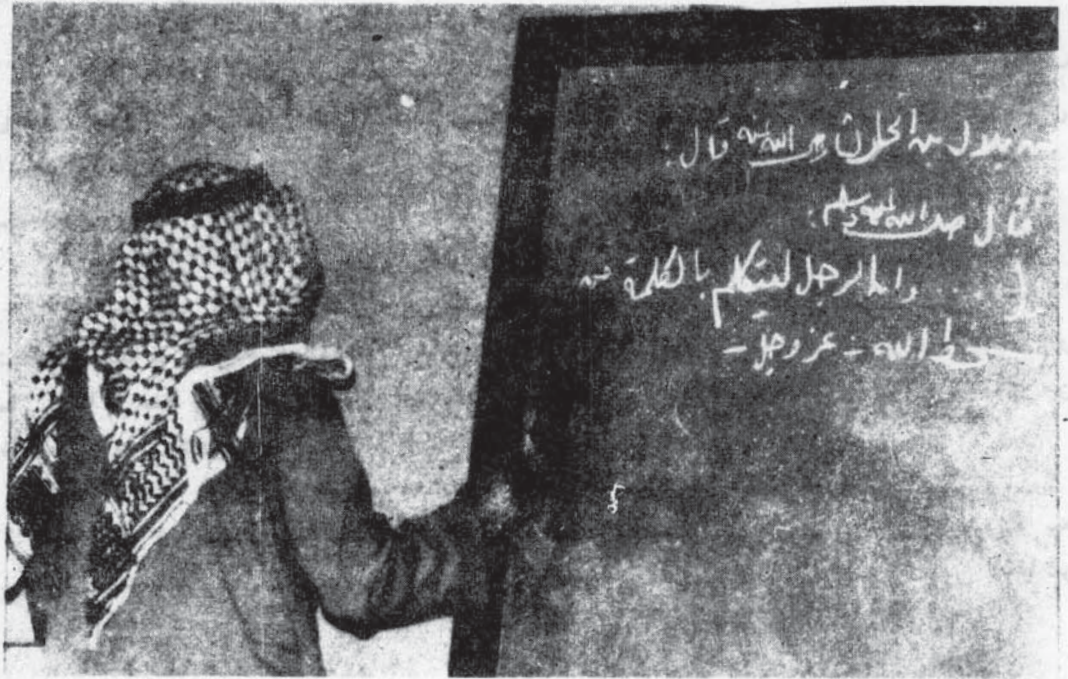 عن بلال بن الحارث رضي الله عنه قال:
قال صلى الله عليه وسلم:
.... وإن الرجل ليتكلم بالكلمة من
سخط الله - عز وجل -